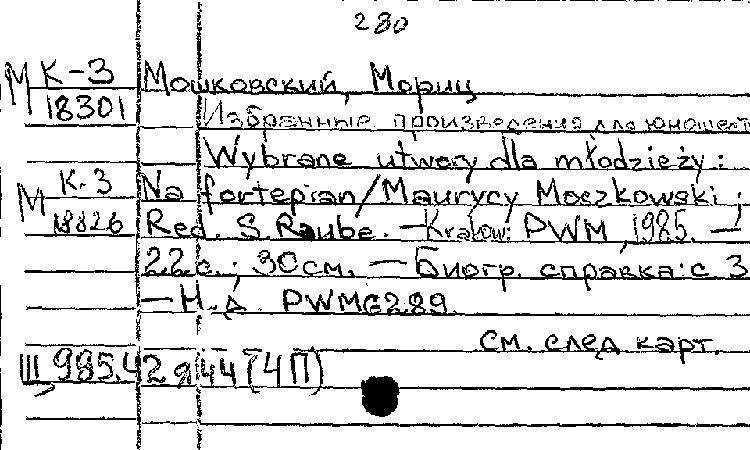 280
М К-3 Мошковский, Мориц
18301 Избранные произведения для юношест
Wybrane utwory dla młodzieży :
М К-3 Na fortepian / Maurycy Moszkowski ;
18826 Red. S. Raube. — Kraków: PWM, 1985. —
22 с. ; 30 см. — Биогр. справка: с 3
— Н. д. PWM 6289.
см. след карт.
Ш 985.42 я 44 (4П)